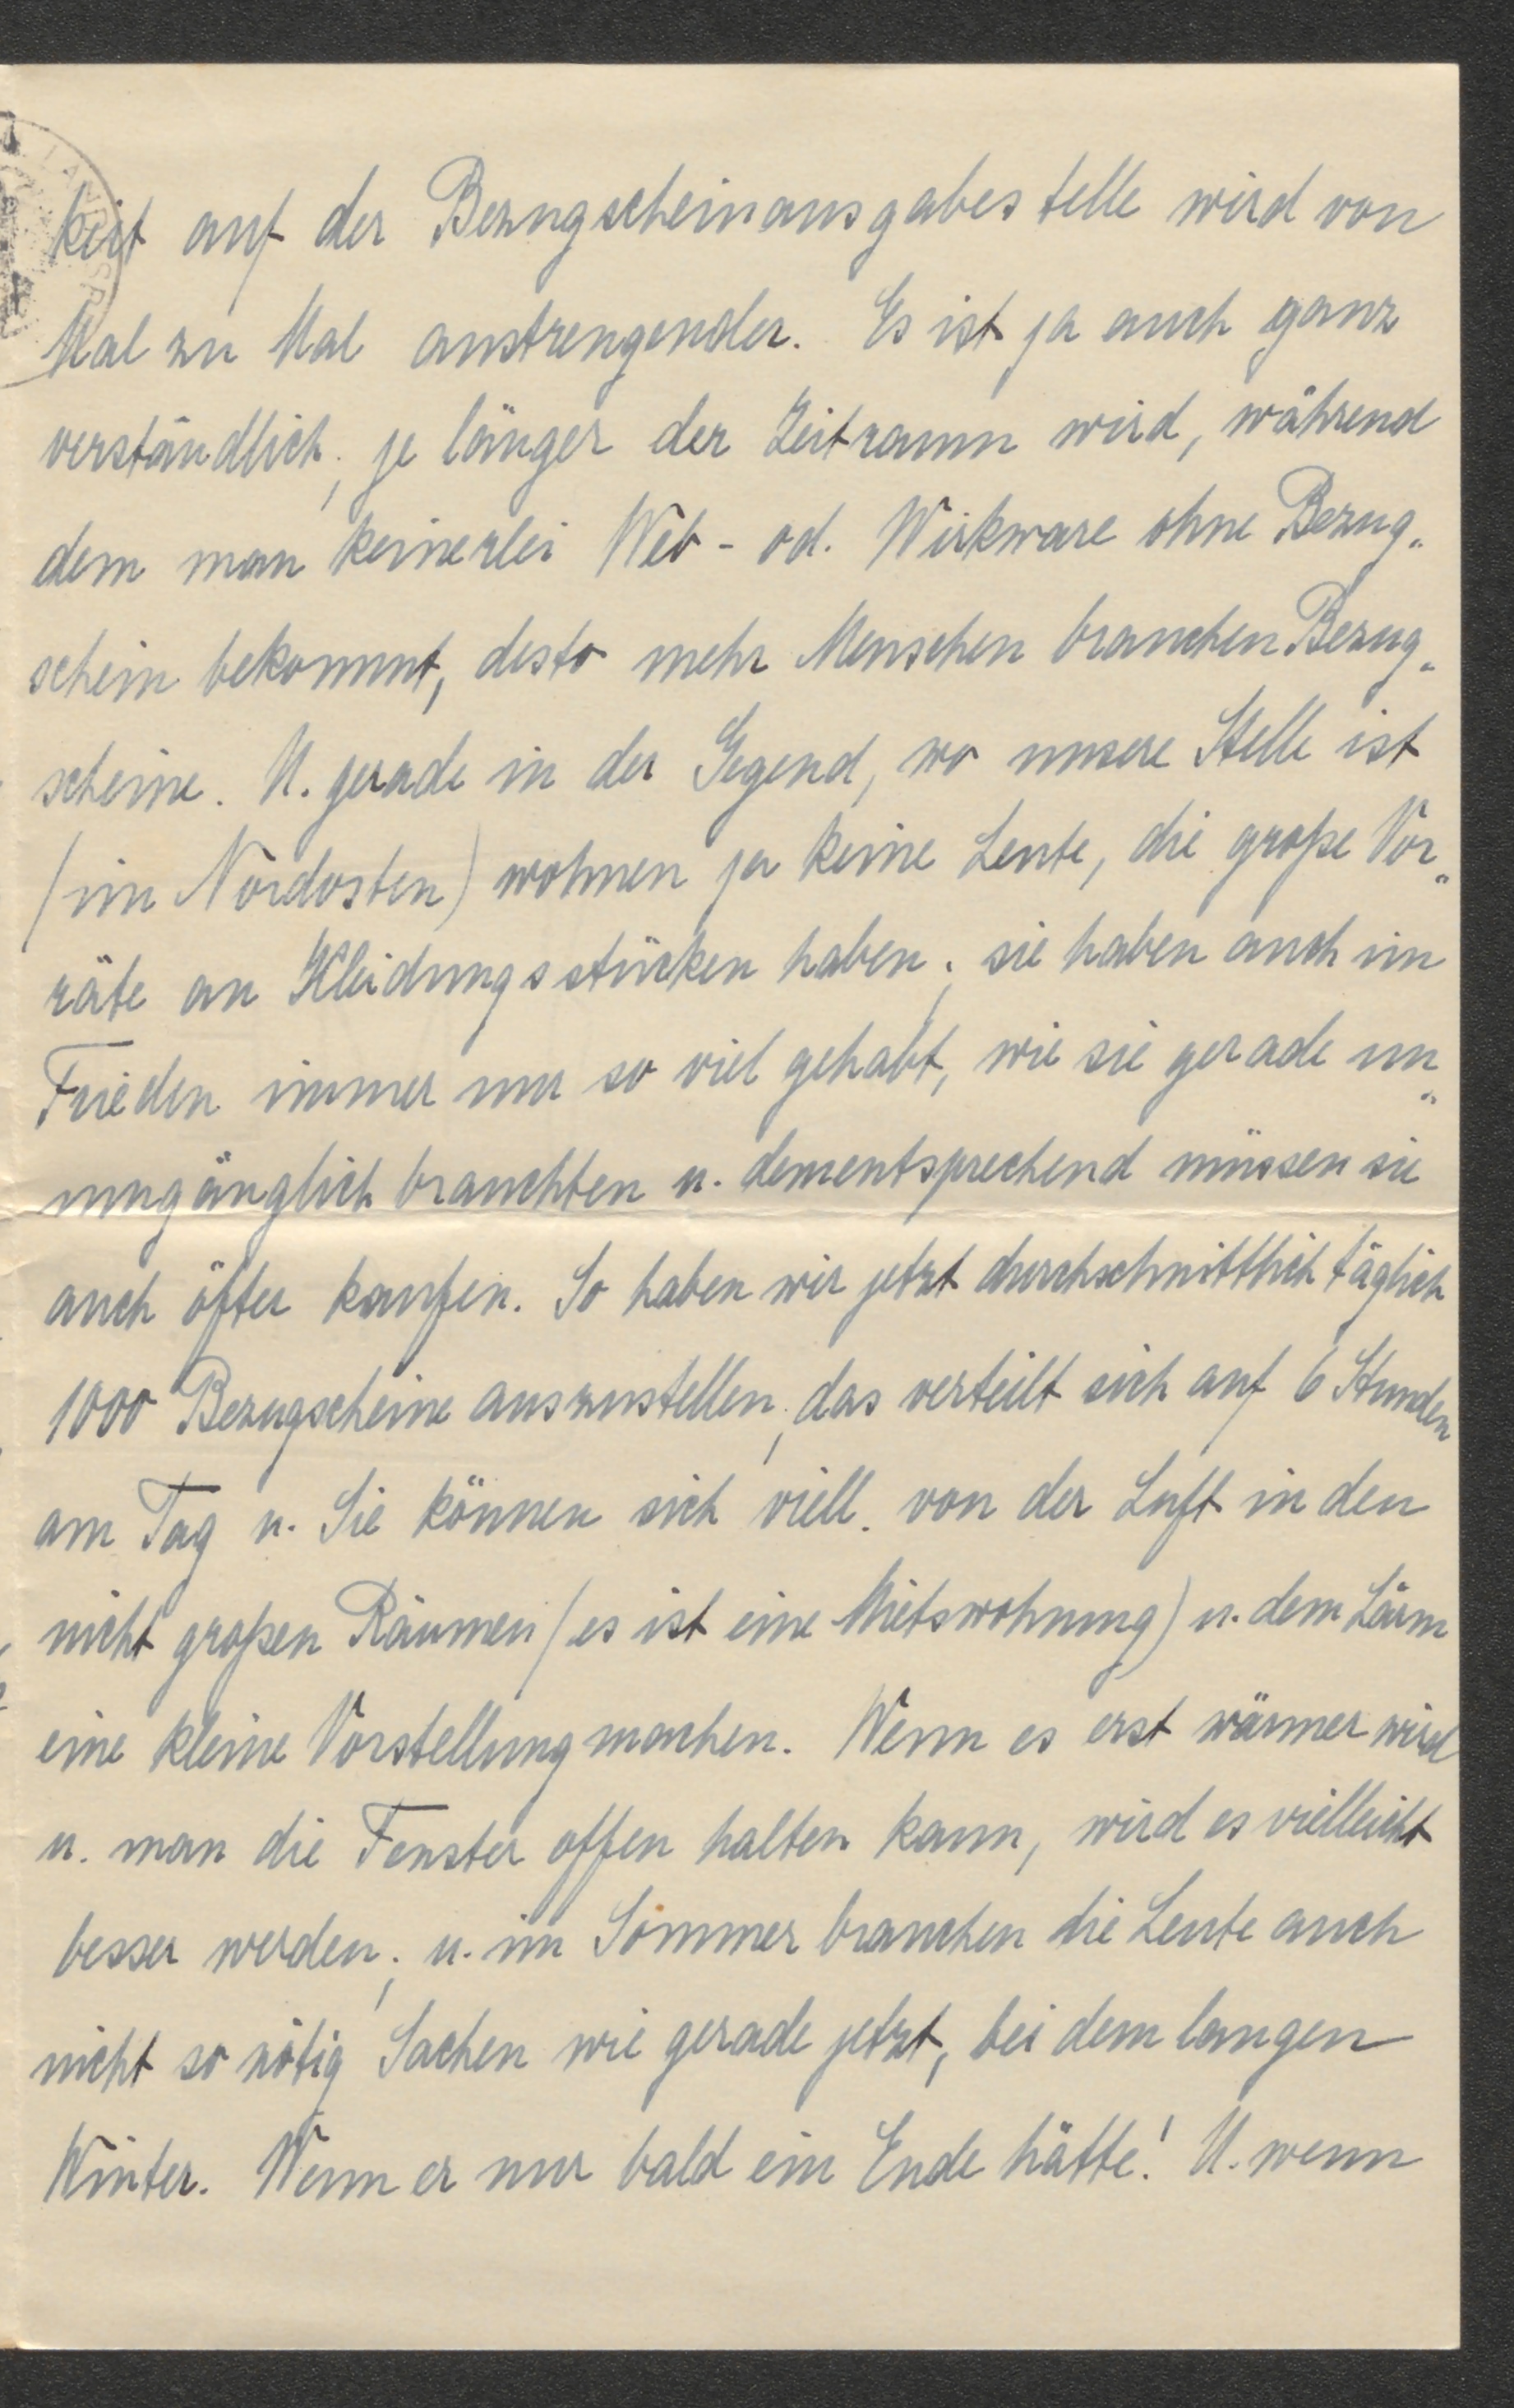 keit auf der Bezugscheinausgabestelle wird von
Mal zu Mal anstrengender. Es ist ja auch ganz
verständlich; je länger der Zeitraum wird, während
dem man keinerlei Web- od. Wirkware ohne Bezug-
schein bekommt, desto mehr Menschen brauchen Bezug-
scheine. U. gerade in der Gegend, wo unsere Stelle ist
(im Nordosten) wohnen ja keine Leute, die große Vor-
räte an Kleidungsstücken haben; sie haben auch im
Frieden immer nur so viel gehabt, wie sie gerade un-
umgänglich brauchten u. dementsprechend müssen sie
auch öfter kaufen. So haben wir jetzt durchschnittlich täglich
1000 Bezugscheine auszustellen; das verteilt sich auf 6 Stunden
am Tag u. Sie können sich viell. von der Luft in den
nicht großen Räumen (es ist eine Mietswohnung) u. dem Lärm
eine kleine Vorstellung machen. Wenn es erst wärmer wird
u. man die Fenster offen halten kann, wird es vielleicht
besser werden; u. im Sommer brauchen die Leute auch
nicht so nötig Sachen wie gerade jetzt, bei dem langen
Winter. Wenn er nur bald ein Ende hätte! U. wenn